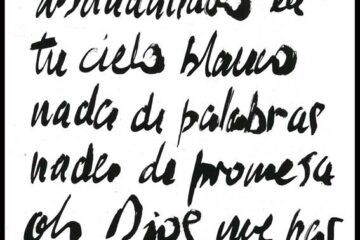 en
tu cielo blanco
nada de palabras
nada de promesa
oh Dios